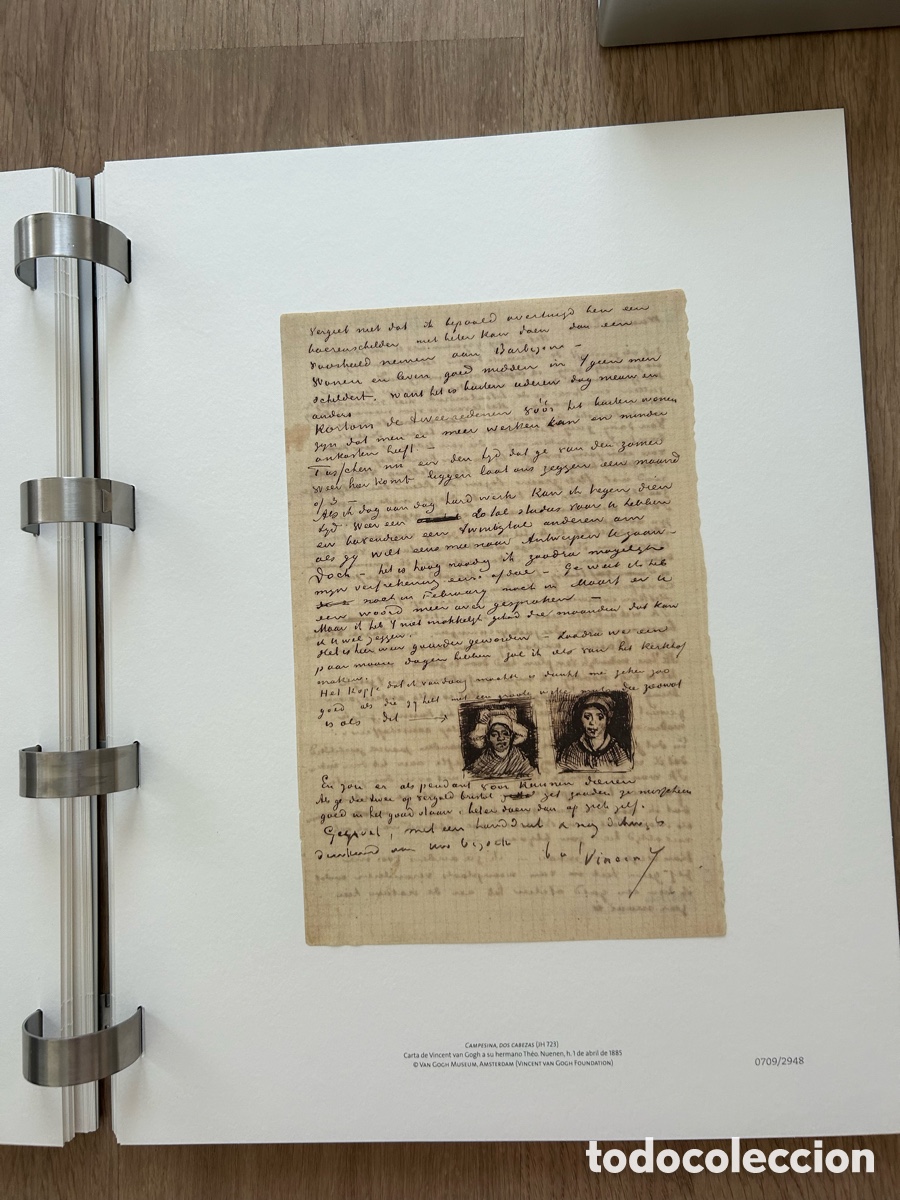 Vergeet niet dat ik bepaald overtuigd ben een
boerenschilder niet beter kan doen dan een
voorbeeld nemen aan Barbizon –
Wonen en leven goed midden in 't geen men
schildert. Want het is buiten iederen dag nieuw en
anders
Kortom de twee redenen vóór het buiten wonen
zijn dat men er meer werken kan en minder
onkosten heeft –
Tusschen nu en den tijd dat ge van den zomer
weer hier komt liggen laat ons zeggen een maand
of 3 –
Als ik dag aan dag hard werk kan ik tegen dien
tijd weer een 20 tal studies voor U hebben
en bovendien een twintigtal anderen om
als gij wilt eens mee naar Antwerpen te gaan –
Doch – het is hoog noodig ik zoodra mogelijk
mijn verfrekening eens afdoe – Ge weet ik heb
noch in February noch in Maart er U
een woord meer over gesproken –
Maar ik heb 't niet makkelijk gehad die maanden dat kan
ik U wel zeggen.
Het is hier weer guurder geworden – Zoodra we een
paar mooie dagen hebben zal ik iets van het kerkhof
maken.
Het kopje dat ik vandaag maakte is dunkt me zeker zoo
goed als die gij hebt met een groote die zoowat
is als dit
En zou er als pendant voor kunnen dienen
Als ge die twee op verguld bristol zet zouden ze misschien
goed in het goud staan, beter doen dan op zich zelf.
Gegroet, met een handdruk & nog dikwijls
denkend aan Uw bezoek
Vincent
CAMPESINA, DOS CABEZAS (JH 723)
Carta de Vincent van Gogh a su hermano Théo. Nuenen, h. 1 de abril de 1885
© VAN GOGH MUSEUM, AMSTERDAM (VINCENT VAN GOGH FOUNDATION)
0709/2948
todocoleccion